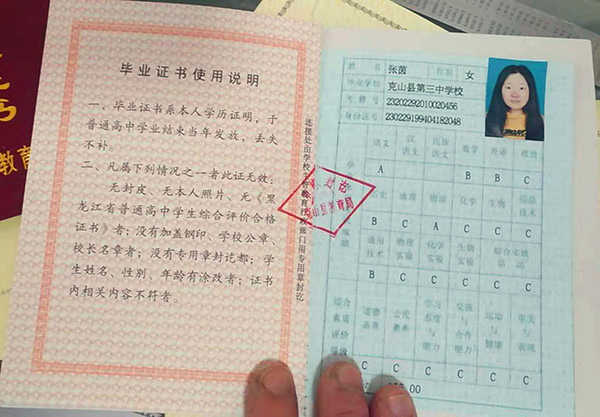 毕业证书使用说明
一、毕业证书系本人学历证明，于
普通高中学业结束当年发放，丢失
不补。
二、凡属下列情况之一者此证无效：
无封皮、无本人照片、无《黑
龙江省普通高中学生综合评价合格
证书》者；没有加盖钢印、学校公章、
校长名章者；没有专用章封讫都；学
生姓名、性别、年龄有涂改者；证书
内相关内容不符者。
教育
克山县教育局
姓名 张茵 性别 女
毕业学校 克山县第三中学校
考籍号 23202292010020456
身份证号 230229199404182048
语文 汉语文 数学 外语 政治
A B B C
地理 物理 化学 生物 信息技术
B C A C C C
通用技术 物理实验 化学实验 生物实验
B C C C C C
综合素质评价等级
道德品质 公民素养 学习态度与能力 交流与合作能力 运动与健康 审美与表现
C C C C C C